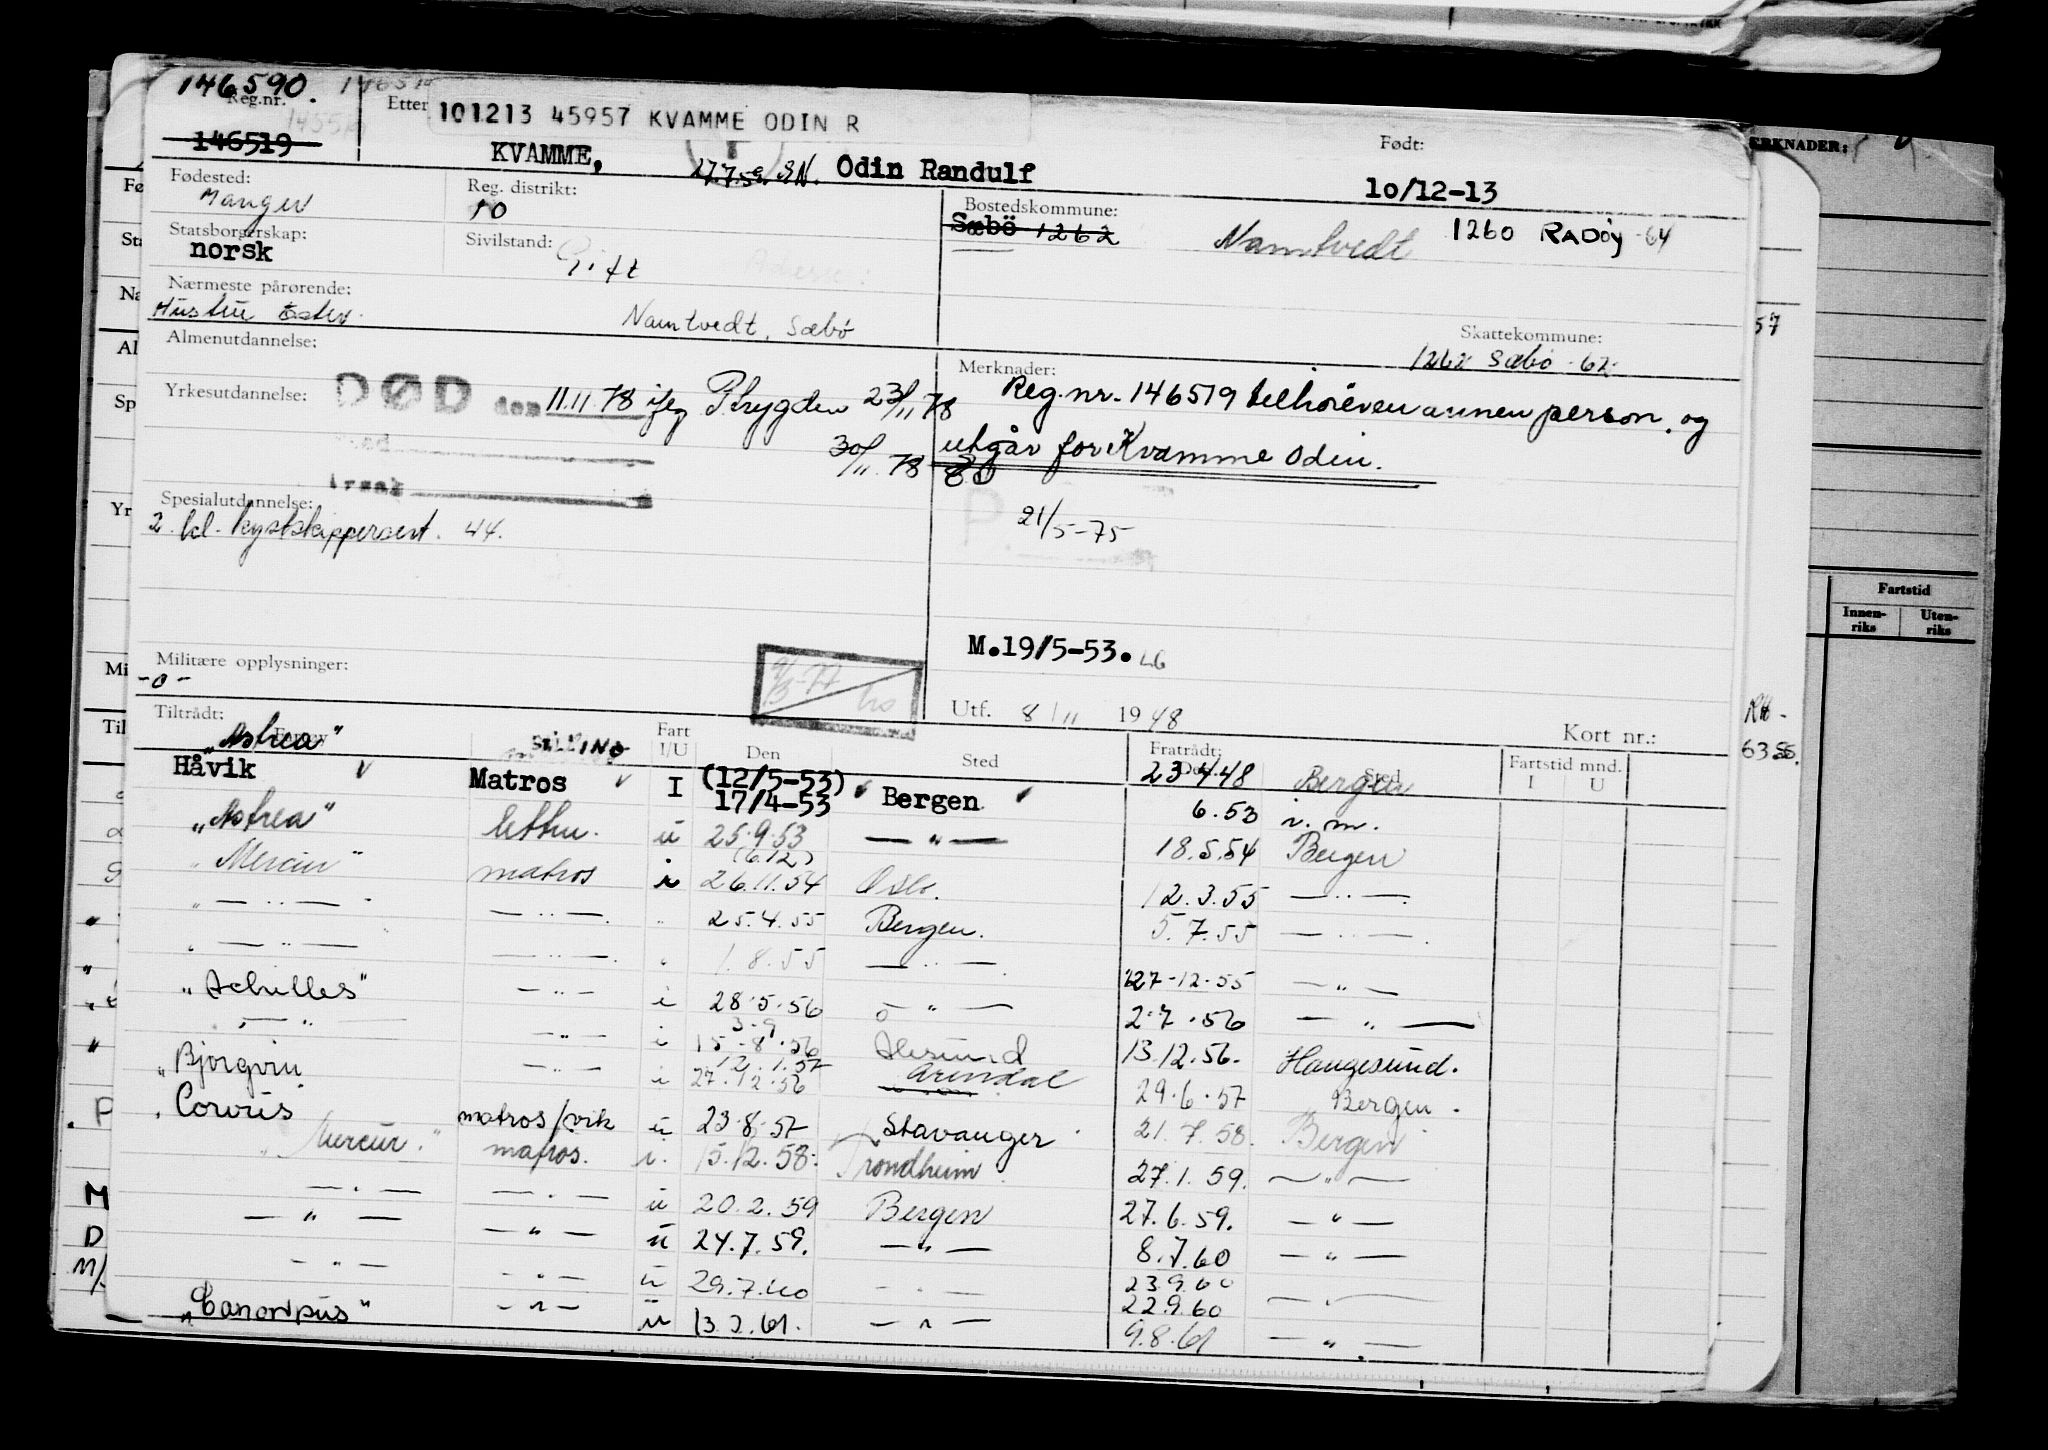 146590.
Reg.nr.
146519
Etter
101213 45957 KVAMME ODIN R
KVAMME, Odin Randulf
Født:
10/12-13
Fødested:
Manger
Reg. distrikt:
10
Bostedskommune:
Sæbö 1262
Namtvedt 1260 RADØY -64
Statsborgerskap:
norsk
Sivilstand:
Gift
Nærmeste pårørende:
Hustru Ester
Namtvedt, Sæbø
Skattekommune:
1262 Sæbø -62
Almenutdannelse:
Yrkesutdannelse:
DØD den 11.11.78 ifg Ptrygden 23/11 78
30/11.78
Årsak
Merknader:
Reg.nr. 146519 tilhører en annen person, og
utgår for Kvamme Odin.
21/5-75
Spesialutdannelse:
2. kl. kystskippersert. 44.
M.19/5-53.
Militære opplysninger:
-0-
Utf. 8/11 1948
Kort nr.:
Tiltrådt:
Fart I/U
Den
Sted
Fratrådt:
Sted
Fartstid mnd.
I U
"Astrea"
23/4 48 Bergen
Håvik Matros I (12/5-53) 17/4-53 Bergen 6.53 i.m.
"Astrea" lettm. u 25.9.53 — " — 18.5.54 Bergen
"Mercur" matros i (6.12) 26.11.54 Oslo 12.3.55 — " —
" — " — — " — " 25.4.55 Bergen. 5.7.55 — " —
" — " — — " — " 1.8.55 — " — 27-12-55 — " —
"Achilles" — " — i 28.5.56 — " — 2.7.56 — " —
— " — — " — i 3.9 15-8.56 Ålesund 13.12.56. Haugesund.
"Bjørgvin — " — i 12.1.57 27.12.56 Arendal 29.6.57 Bergen.
Corvus matros/vik u 23.8.57 Stavanger 21.7.58. Bergen
"Mercur" matros. i. 15.12.58. Trondheim 27.1.59. — " —
— " — — " — u 20.2.59 Bergen 27.6.59. — " —
— " — — " — u 24.7.59. — " — 8.7.60 — " —
— " — — " — u 29.7.60 — " — 23.9.60
22.9.60 — " —
"Canopus" — " — u 13.2.61. — " — 9.8.61 — " —
MERKNADER:
57
Fartstid
Innen-
riks
Uten-
riks